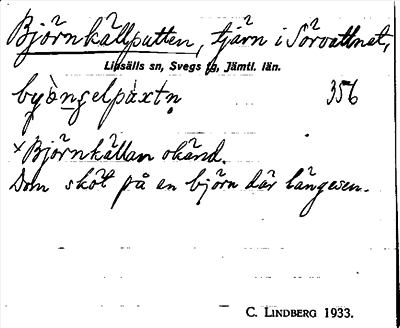 Björnkällputten, tjärn i Sörvattnet,
Linsälls sn, Svegs tg, Jämtl. län.
356
× Björnkällan okänd.
Dom sköt på en björn där längesen.
C. LINDBERG 1933.